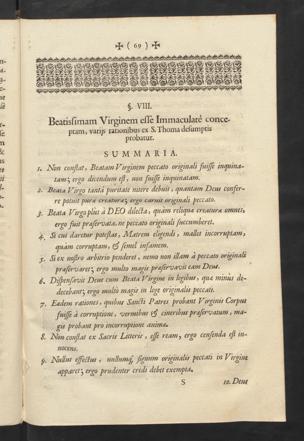 ✠ ( 69 ) ✠
§. VIII.
Beatissimam Virginem esse Immaculatè conce-
ptam, varijs rationibus ex S. Thoma desumptis
probatur.
SUMMARIA.
1. Non constat, Beatam Virginem peccato originali fuisse inquina-
tam; ergo dicendum est, non fuisse inquinatam.
2. Beata Virgo tantâ puritate nitere debuit, quantam Deus confer-
re potuit puræ creaturæ; ergo caruit originali peccato.
3. Beata Virgo plùs à DEO dilecta, quàm reliquæ creaturæ omnes,
ergo fuit præservata, ne peccato originali succumberet.
4. Si cui daretur potestas, Matrem eligendi, mallet incorruptam,
quàm corruptam, & semel infamem.
5. Si ex nostro arbitrio penderet, nemo non illam à peccato originali
præservaret; ergo multò magis præservavit eam Deus.
6. Dispensavit Deus cum Beata Virgine in legibus, quæ minùs de-
decebant; ergo multò magis in lege originalis peccati.
7. Eædem rationes, quibus Sancti Patres probant Virginis Corpus
fuisse à corruptione, vermibus & cineribus præservatum, ma-
gis probant pro incorruptione animæ.
8. Non constat ex Sacris Litteris, esse ream, ergo censenda est in-
nocens.
9. Nullus effectus, nullumq; signum originalis peccati in Virgine
apparet; ergo prudenter credi debet exempta.
S
10. Deus